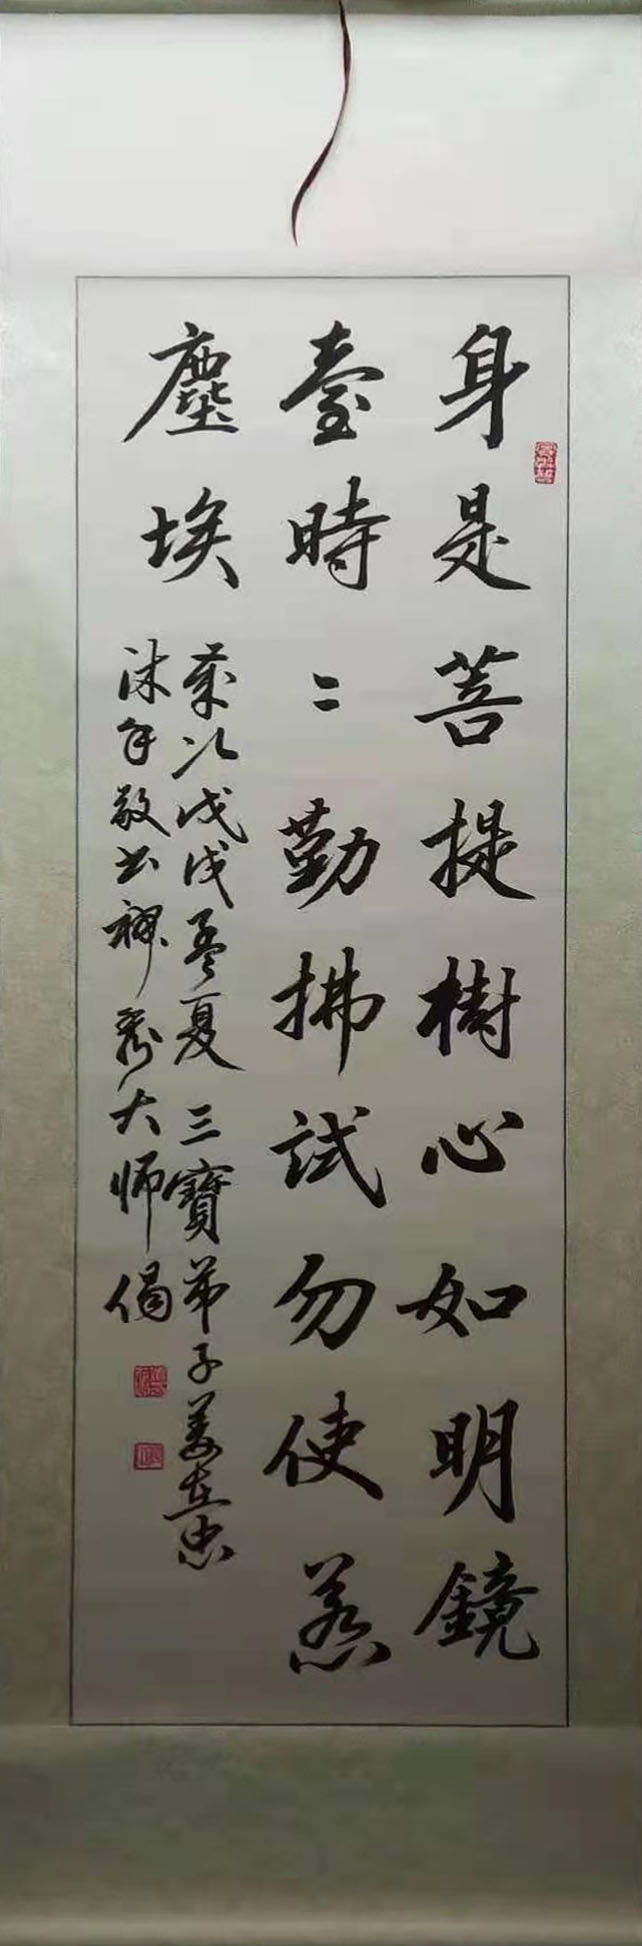 身是菩提樹心如明鏡
臺時〻勤拂試勿使惹
塵埃
歲次戊戌孟夏 三寶弟子姜在忠
沐手敬书禅秀大师偈